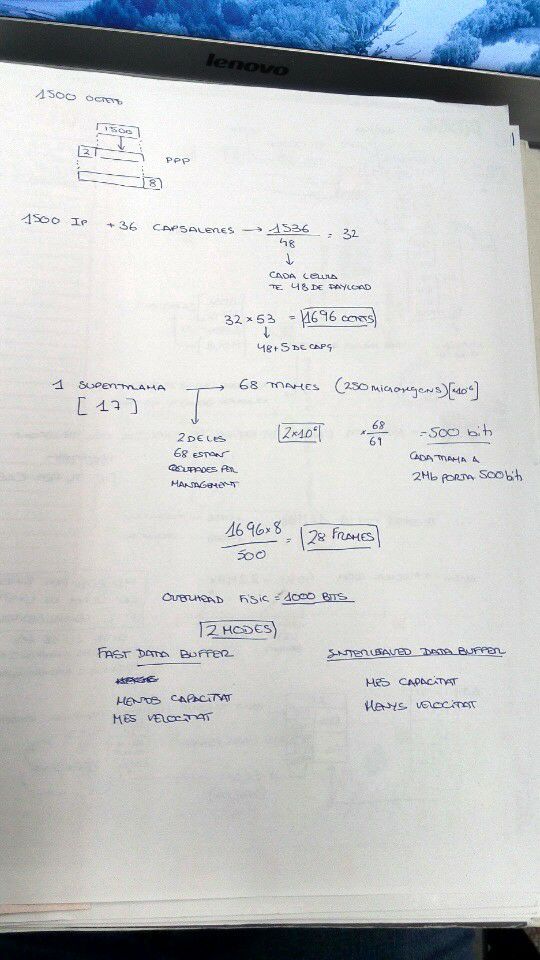 lenovo
1500 OCTETS
1500
2
PPP
8
1500 IP + 36 CAPSALERES → 1536 / 48 = 32
CADA CEL·LULA
TE 48 DE PAYLOAD
32 × 53 = 1696 OCTETS
48 + 5 DE CAPÇ
1 SUPERTRAMA → 68 TRAMES (250 microsegons) [×10⁻⁶]
[17]
2 DE LES
68 ESTAN
OCUPADES PER
MANAGEMENT
2×10⁶ × 68/69 = 500 bits
CADA TRAMA A
2Mb PORTA 500 bits
1696×8 / 500 = 28 FRAMES
OVERHEAD FISIC = 1000 BITS
2 MODES
FAST DATA BUFFER
MENYS CAPACITAT
MÉS VELOCITAT
INTERLEAVED DATA BUFFER
MÉS CAPACITAT
MENYS VELOCITAT